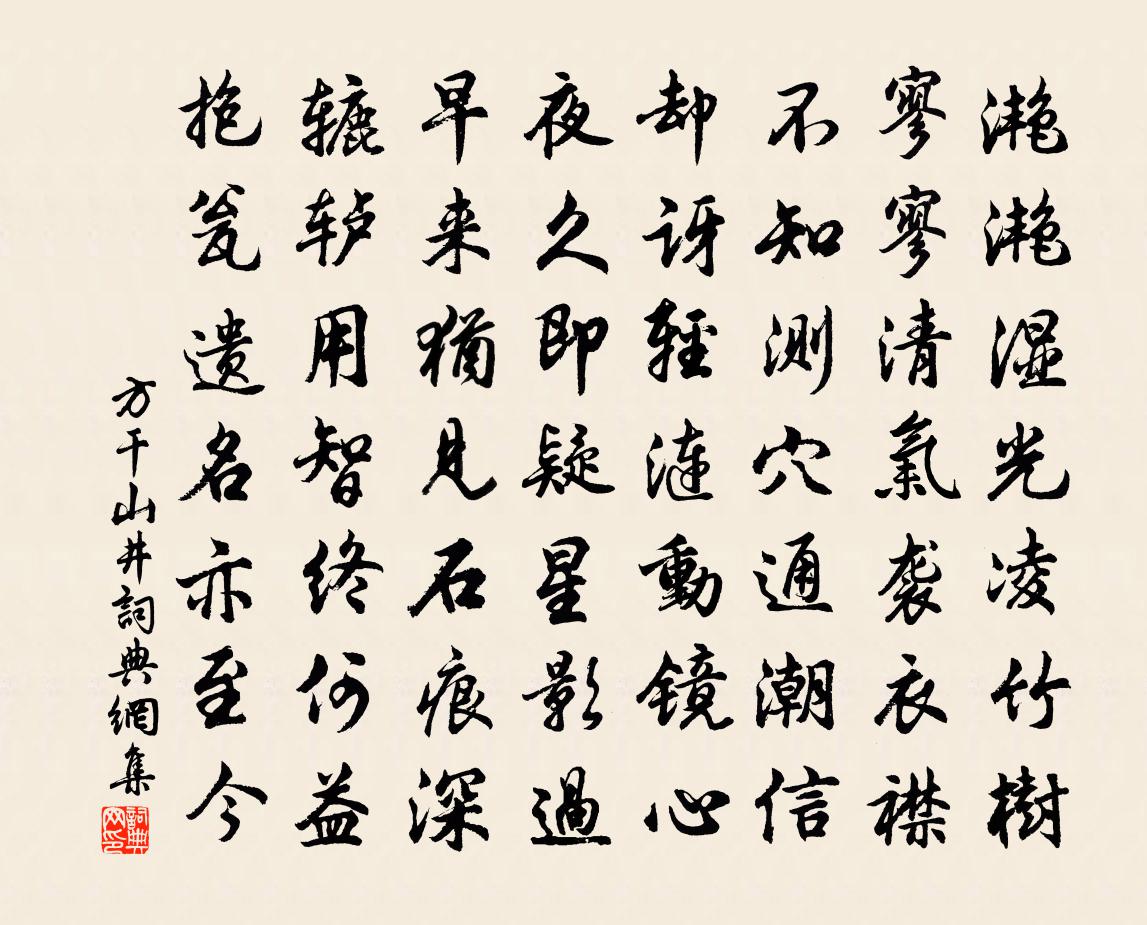 灔灔湿光凌竹樹
寥寥清氣袭衣襟
不知测穴通潮信
却讶輕漣動镜心
夜久即疑星影過
早来猶見石痕深
辘轳用智终何益
抱瓮遗名亦至今
方干山井詞典網集
詞典网印